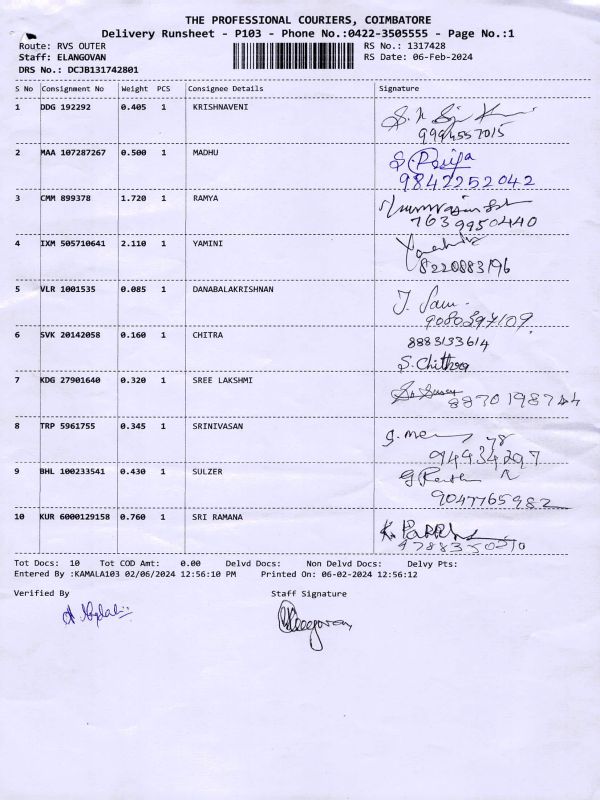 THE PROFESSIONAL COURIERS, COIMBATORE
Delivery Runsheet - P103 - Phone No.:0422-3505555 - Page No.:1
Route: RVS OUTER RS No.: 1317428
Staff: ELANGOVAN RS Date: 06-Feb-2024
DRS No.: DCJB131742801
S No Consignment No Weight PCS Consignee Details Signature
1 DDG 192292 0.405 1 KRISHNAVENI
9994557015
2 MAA 107287267 0.500 1 MADHU S. Priya
9842252042
3 CMM 899378 1.720 1 RAMYA
7639950440
4 IXM 505710641 2.110 1 YAMINI
8220883196
5 VLR 1001535 0.085 1 DANABALAKRISHNAN
9080597109
6 SVK 20142058 0.160 1 CHITRA 8883133614
S. Chithra
7 KDG 27901640 0.320 1 SREE LAKSHMI
8 TRP 5961755 0.345 1 SRINIVASAN
9 BHL 100233541 0.430 1 SULZER
9047765982
10 KUR 6000129158 0.760 1 SRI RAMANA
Tot Docs: 10 Tot COD Amt: 0.00 Delvd Docs: Non Delvd Docs: Delvy Pts:
Entered By :KAMALA103 02/06/2024 12:56:10 PM Printed On: 06-02-2024 12:56:12
Verified By Staff Signature
Elangovan